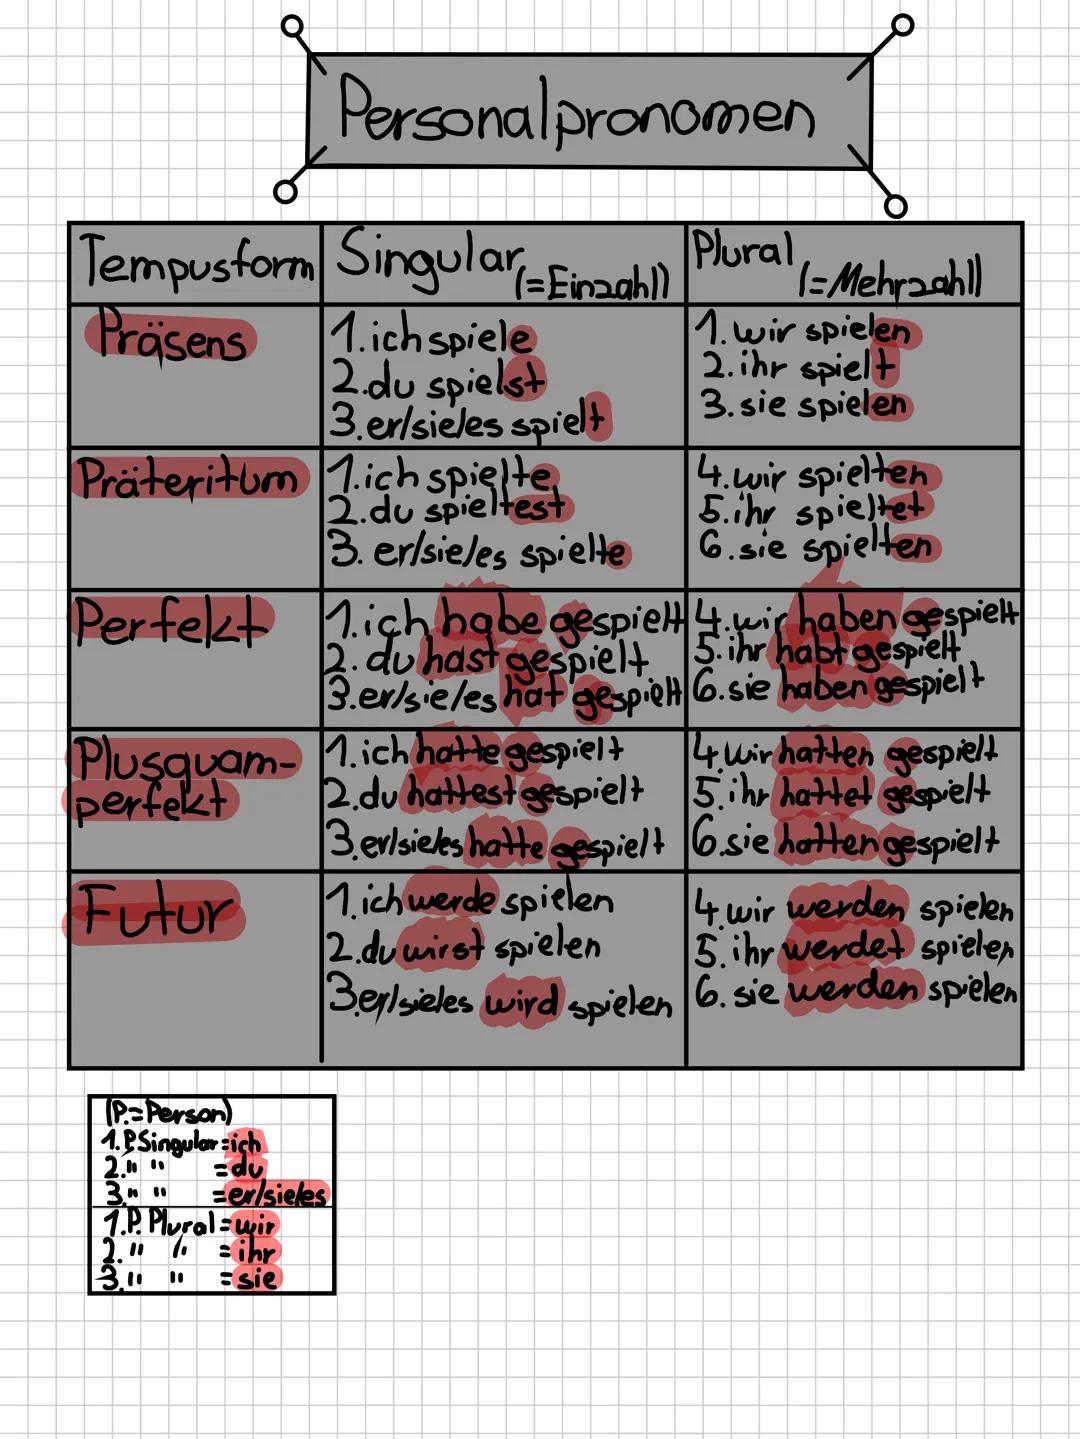 Personalpronomen
Tempusform
Singular (=Einzahl)
Plural (=Mehrzahl)
Präsens
1. ich spiele
2. du spielst
3. er/sie/es spielt
1. wir spielen
2. ihr spielt
3. sie spielen
Präteritum
1. ich spielte
2. du spieltest
3. er/sie/es spielte
4. wir spielten
5. ihr spieltet
6. sie spielten
Perfekt
1. ich habe gespielt
2. du hast gespielt
3. er/sie/es hat gespielt
4. wir haben gespielt
5. ihr habt gespielt
6. sie haben gespielt
Plusquam-
perfekt
1. ich hatte gespielt
2. du hattest gespielt
3. er/sie/es hatte gespielt
4. wir hatten gespielt
5. ihr hattet gespielt
6. sie hatten gespielt
Futur
1. ich werde spielen
2. du wirst spielen
3. er/sie/es wird spielen
4. wir werden spielen
5. ihr werdet spielen
6. sie werden spielen
(P.=Person)
1. P. Singular = ich
2. " " = du
3. " " = er/sie/es
1. P. Plural = wir
2. " " = ihr
3. " " = sie